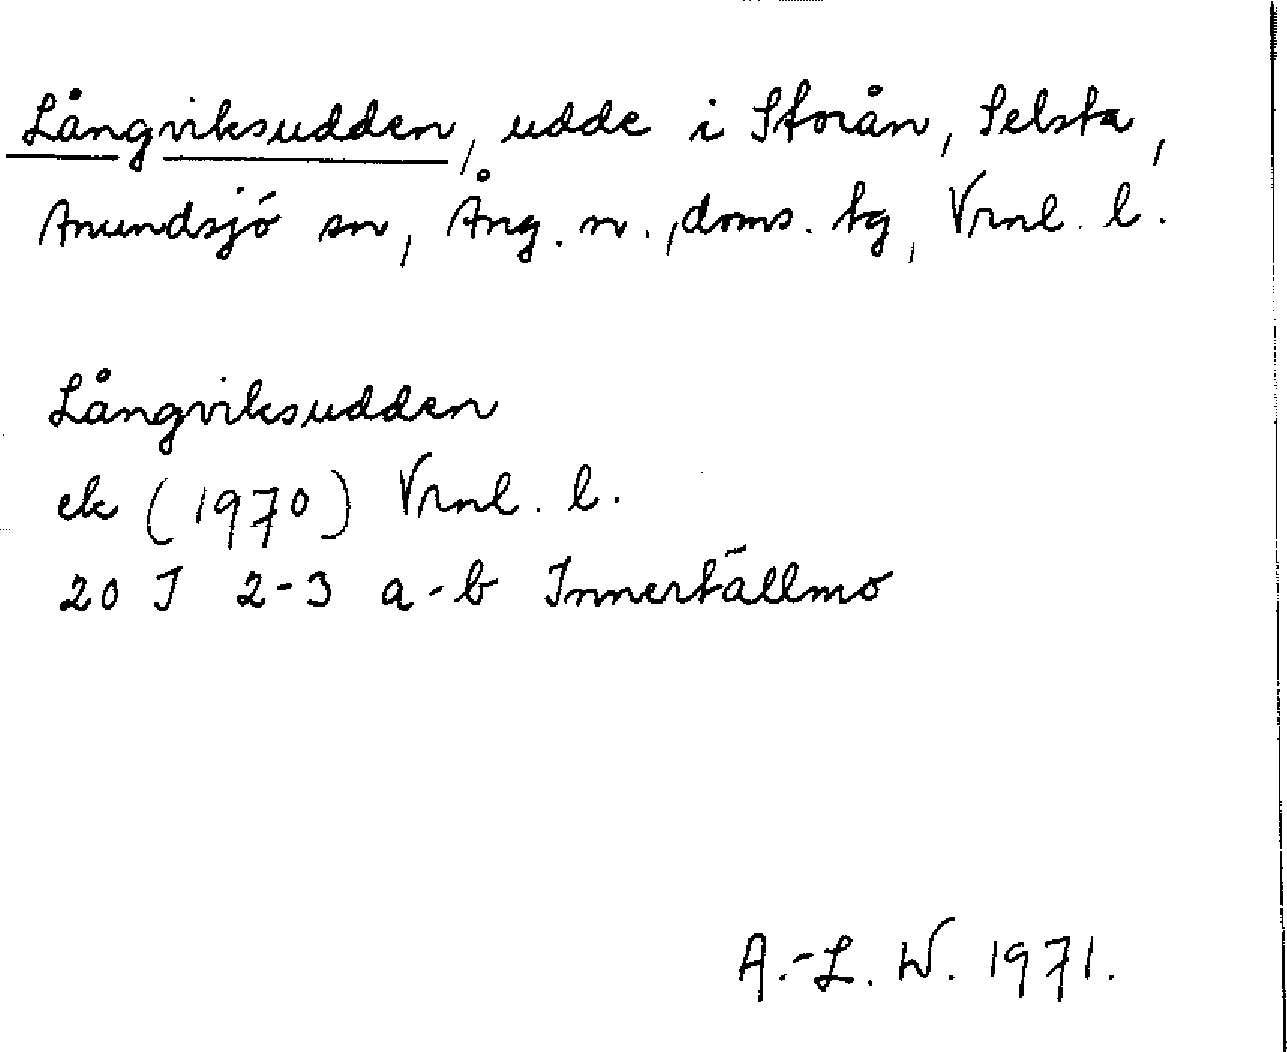 Långviksudden, udde i Storån, Selsta,
Anundsjö sn, Ång. n., doms. tg, Vrnl. l.
Långviksudden
ek (1970) Vrnl. l.
20 J 2-3 a-b Innertällmo
A.-L. W. 1971.